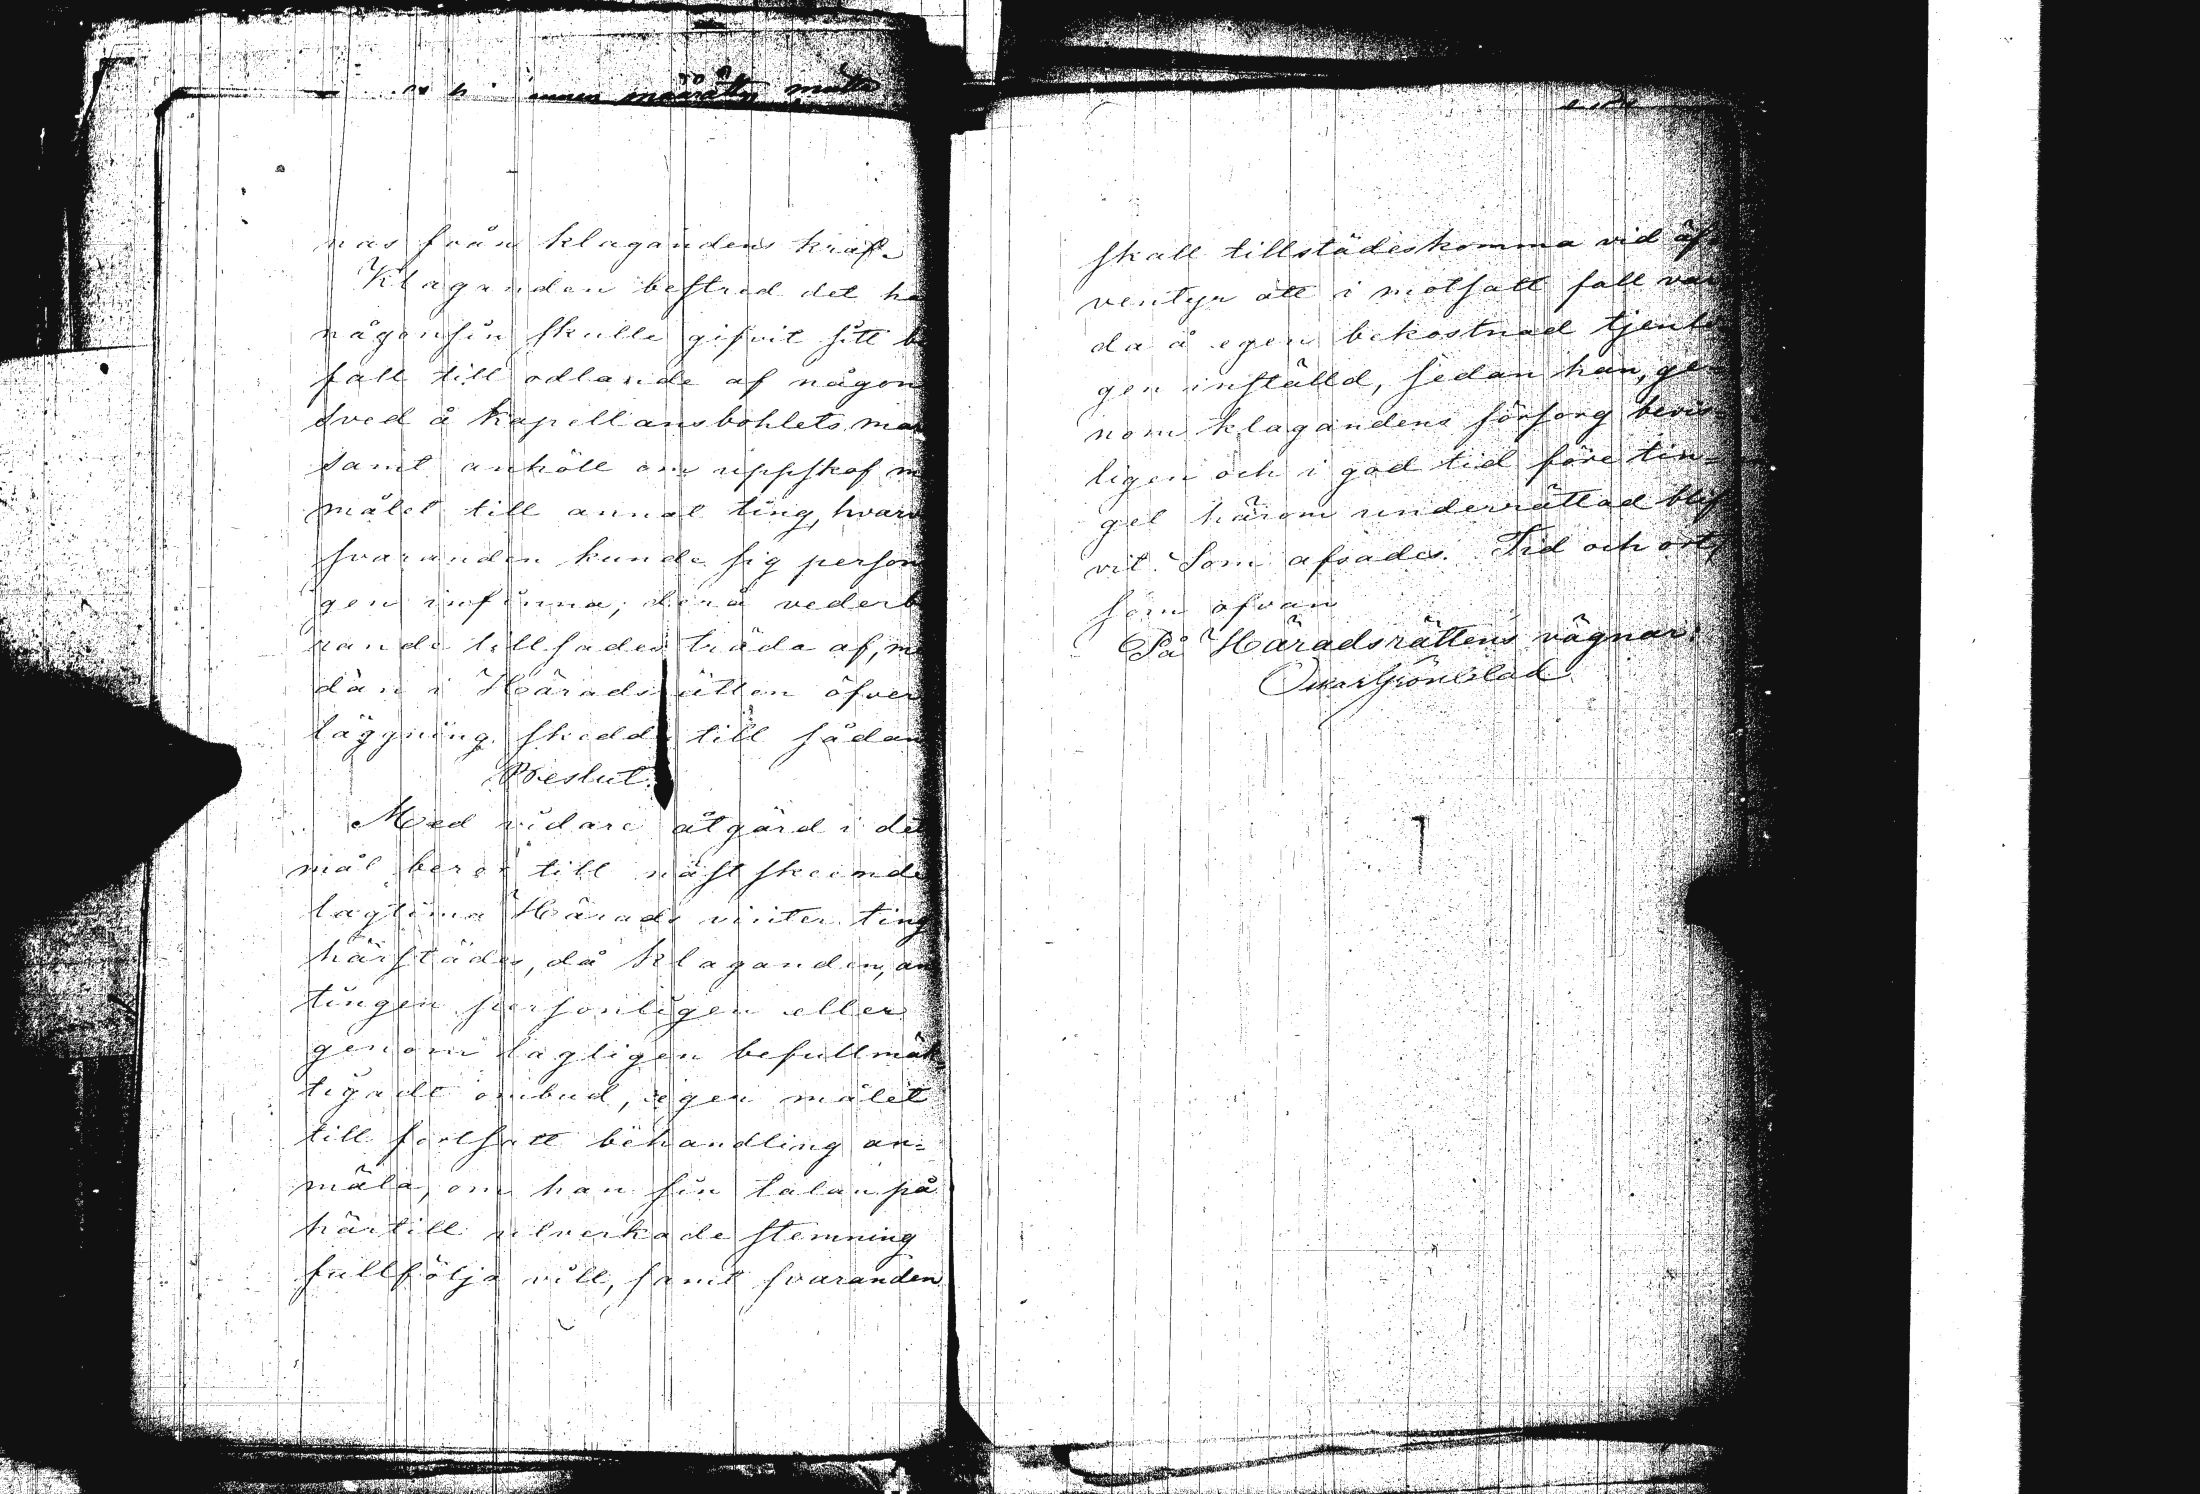 nas från klagandens kraf.
Klaganden bestred det ha
någonsin skulle gifvit sitt b
fall till odlande af någon
sved å kapellansbohlets ma
samt anhöll om uppskof m
målet till annat ting, hvar
svaranden kunde sig person
gen infinna; derå vederb
rande tillsades träda af, me
dan i Häradsrätten öfver
läggning skedde till sådan
Beslut.
Med vidare åtgärd i det
mål beror till näst skeende
lagtima Härads vinter ting
härstädes, då klaganden, an
tingen personligen eller
genom lagligen befullmäk
tigadt ombud, egen målet
till fortsatt behandling an=
mäla, om han sin talan på
härtill utverkade stemning
fullfölja vill, samt svaranden
skall tillstädeskomma vid äf
ventyr att i motsatt fall var
da å egen bekostnad tjenli
gen inställd, sedan han, ge
nom klagandens försorg bevis
ligen och i god tid före tin=
get härom underrättad blif
vit. Som afsades. Tid och ort,
som ofvan
På Häradsrättens vägnar:
Oskar Grönblad